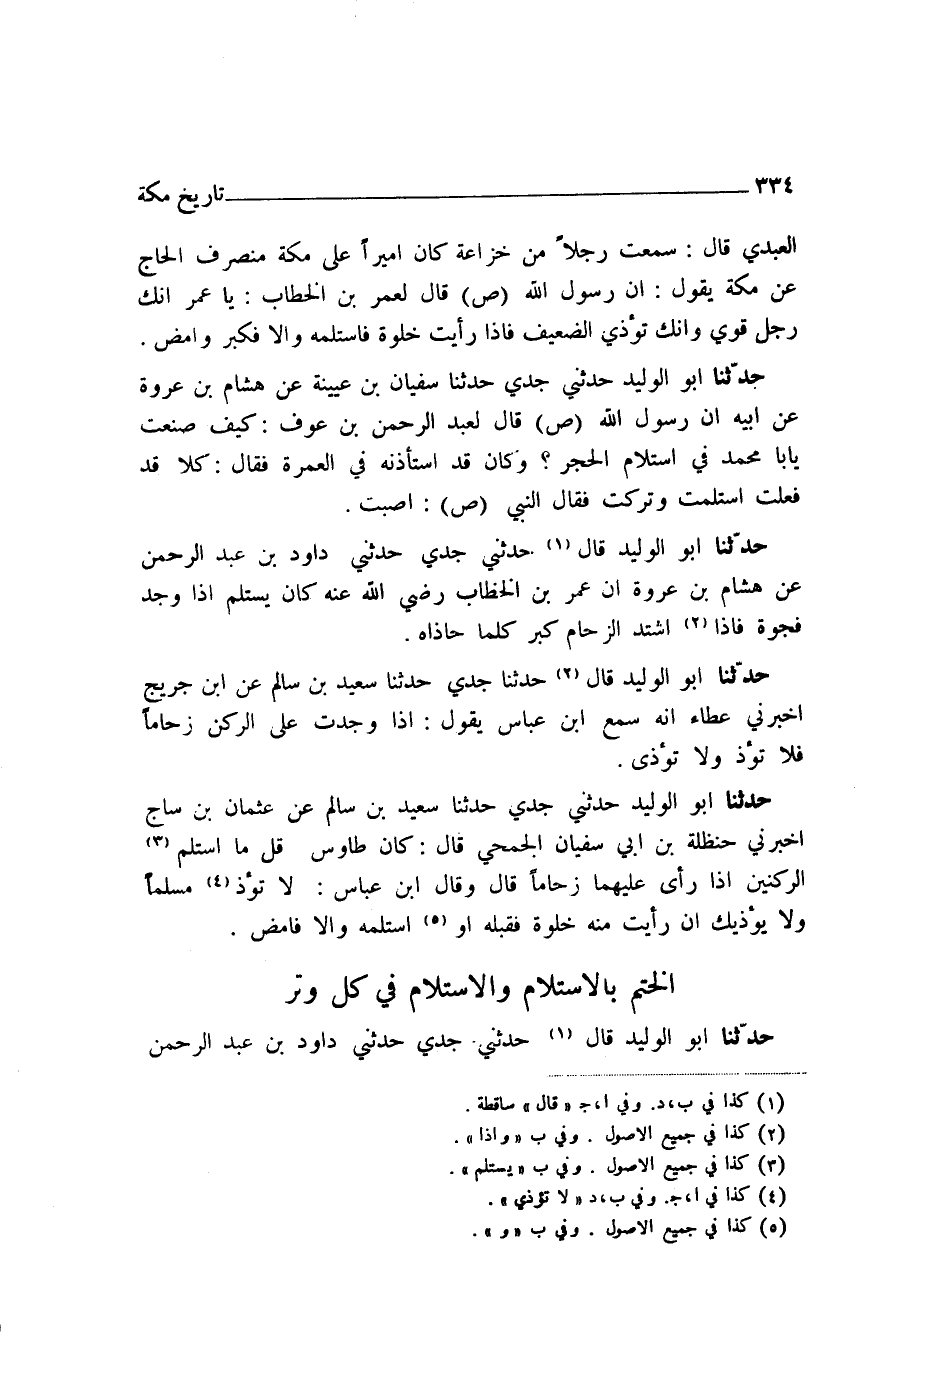 ٣٣٤ تاريخ مكة
العبدي قال : سمعت رجلاً من خزاعة كان اميراً على مكة منصرف الحاج
عن مكة يقول : ان رسول الله (ص) قال لعمر بن الخطاب : يا عمر انك
رجل قوي وانك تؤذي الضعيف فاذا رأيت خلوة فاستلمه والا فكبر وامض .
حدّثنا ابو الوليد حدثني جدي حدثنا سفيان بن عيينة عن هشام بن عروة
عن ابيه ان رسول الله (ص) قال لعبد الرحمن بن عوف : كيف صنعت
يابا محمد في استلام الحجر ؟ وكان قد استأذنه في العمرة فقال : كلا قد
فعلت استلمت وتركت فقال النبي (ص) : اصبت .
حدّثنا ابو الوليد قال (١) حدثني جدي حدثني داود بن عبد الرحمن
عن هشام بن عروة ان عمر بن الخطاب رضي الله عنه كان يستلم اذا وجد
فجوة فاذا (٢) اشتد الزحام كبر كلما حاذاه .
حدّثنا ابو الوليد قال (٢) حدثنا جدي حدثنا سعيد بن سالم عن ابن جريج
اخبرني عطاء انه سمع ابن عباس يقول : اذا وجدت على الركن زحاماً
فلا تؤذ ولا تؤذى .
حدثنا ابو الوليد حدثني جدي حدثنا سعيد بن سالم عن عثمان بن ساج
اخبرني حنظلة بن ابي سفيان الجمحي قال : كان طاوس قل ما استلم (٣)
الركنين اذا رأى عليهما زحاماً قال وقال ابن عباس : لا تؤذ (٤) مسلماً
ولا يؤذيك ان رأيت منه خلوة فقبله او (٥) استلمه والا فامض .
الختم بالاستلام والاستلام في كل وتر
حدّثنا ابو الوليد قال (١) حدثني جدي حدثني داود بن عبد الرحمن
(١) كذا في ب،د. وفي ا،ج «قال» ساقطة .
(٢) كذا في جميع الاصول . وفي ب «واذا» .
(٣) كذا في جميع الاصول . وفي ب «يستلم» .
(٤) كذا في ا،ج. وفي ب،د « لا تؤذي » .
(٥) كذا في جميع الاصول . وفي ب «و» .